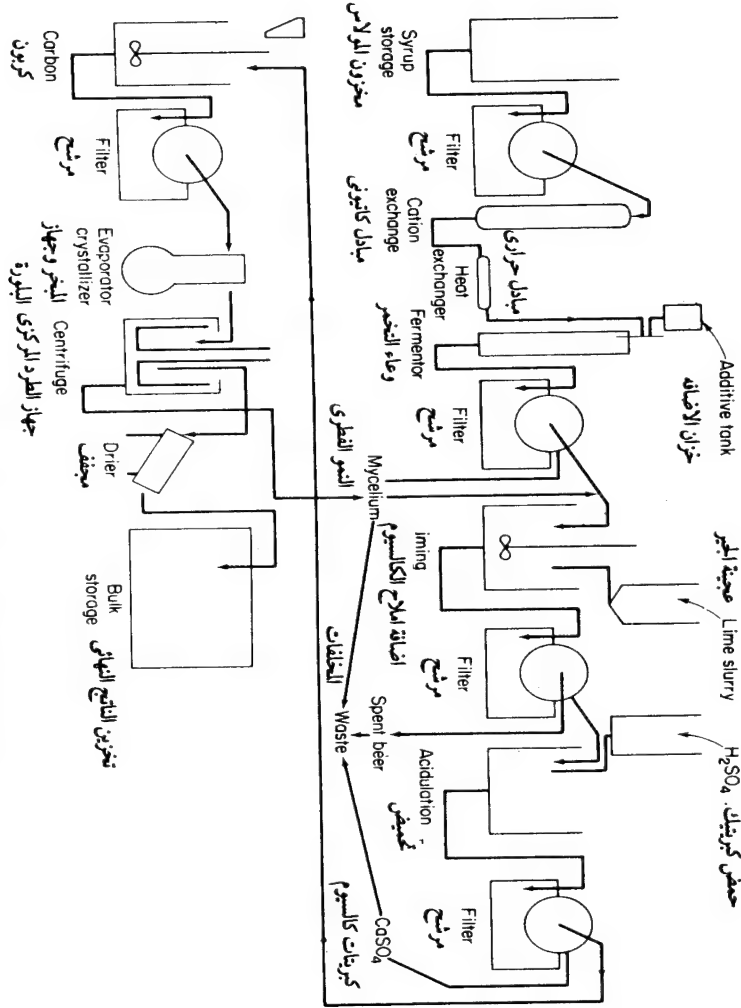 Syrup
storage
مخزون المولاس
Filter
مرشح
Cation
exchange
مبادل كاتيونى
Heat
exchanger
مبادل حرارى
Additive tank
خزان الاضافه
Fermentor
وعاء التخمر
Filter
مرشح
Mycelium
النمو الفطرى
iming
اضافة املاح الكالسيوم
Lime slurry
عجينة الجير
Filter
مرشح
Spent beer
Waste
المخلفات
H₂SO₄.
حمض كبريتيك.
Acidulation -
تحميض
Filter
مرشح
CaSO₄
كبريتات كالسيوم
Carbon
كربون
Filter
مرشح
Evaporator
crystallizer
المبخر وجهاز
البلورة
Centrifuge
جهاز الطرد المركزى
Drier
مجفف
Bulk
storage
تخزين الناتج النهائى